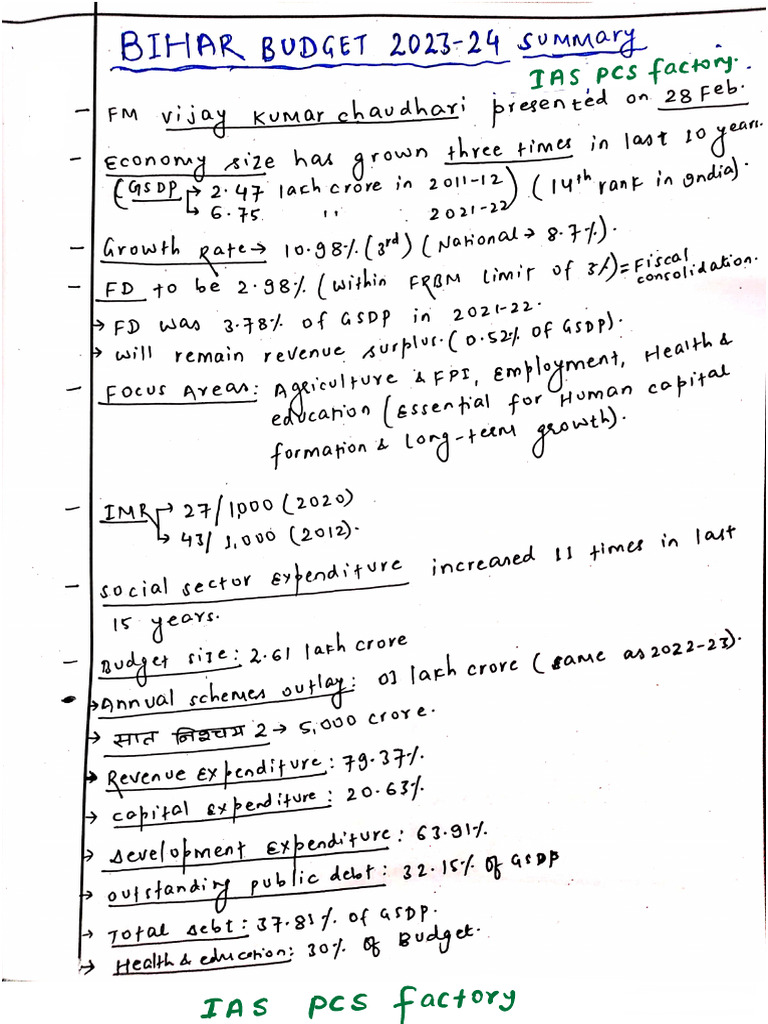 BIHAR BUDGET 2023-24 SUMMARY
IAS PCS factory.
- FM Vijay Kumar Chaudhari presented on 28 Feb.
- Economy size has grown three times in last 10 years.
(GSDP → 2.47 lach crore in 2011-12) (14th rank in India).
↳ 6.75 " 2021-22
- Growth Rate → 10.98% (3rd) (National → 8.7%).
- FD to be 2.98% (within FRBM limit of 3%) = Fiscal consolidation.
→ FD was 3.78% of GSDP in 2021-22.
→ will remain revenue surplus. (0.52% of GSDP).
- Focus Areas: Agriculture & FPI, Employment, Health &
education (Essential for Human capital
formation & long-term growth).
- IMR → 27/1000 (2020)
↳ 43/1,000 (2012).
- Social sector Expenditure increased 11 times in last
15 years.
- Budget size: 2.61 lakh crore
→ Annual schemes outlay: 01 lakh crore (same as 2022-23).
→ सात निश्चय 2 → 5,000 crore.
→ Revenue Expenditure: 79.37%.
→ Capital Expenditure: 20.63%.
→ Development Expenditure: 63.91%.
→ Outstanding public debt: 32.15% of GSDP
→ Total debt: 37.81% of GSDP.
→ Health & education: 30% of Budget.
IAS PCS factory